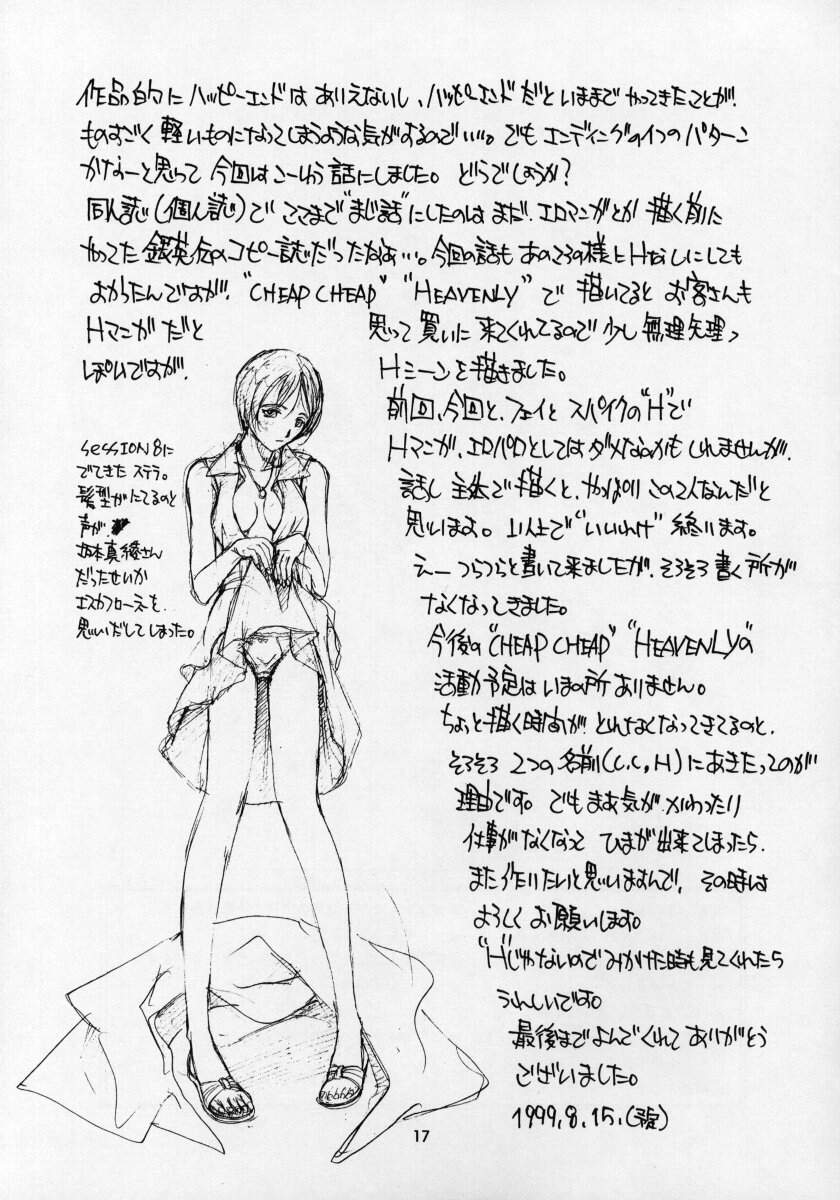 作品的にハッピーエンドはありえないし、ハッピーエンドだといままでやってきたことが、
ものすごく軽いものになってしまうような気がするので…。でもエンディングの1つのパターン
かなーと思って今回はこーいう話にしました。どうでしょうか?
同人誌(個人誌)でここまで"まじ話"にしたのはまだ、エロマンガとか描く前に
やってた銀英伝のコピー誌だったかなぁ…。今回の話もあのころの様にHなしにしても
よかったんですが、"CHEAP CHEAP" "HEAVENLY"で描いてるとお客さんも
Hマンガだと思って買いに来てくれてるので少し無理矢理っ
ぽいですが、Hシーンを描きました。
前回、今回と、フェイとスパイクの"H"で
Hマンガ、エロパロとしてはダメなのかもしれませんが、
話し主体で描くと、やっぱりこの2人なんだと
思います。以上で"いいわけ"終ります。
えーつらつらと書いて来ましたが、そろそろ書く所が
なくなってきました。
今後の"CHEAP CHEAP" "HEAVENLY"の
活動予定はいまの所ありません。
ちょっと描く時間がとれなくなってきてるのと、
そろそろ2つの名前(C.C,H)にあきたってのが
理由です。でもまあ気がかわったり
仕事がなくなってひまが出来てしまったら、
また作りたいと思いますんで、その時は
よろしくお願いします。
"H"じゃないのでみかけた時も見てくれたら
うれしいです。
最後までよんでくれてありがとう
ございました。
1999.8.15.
SESSION8に
でてきたステラ。
髪型がにてるのと
声が、
坂本真綾さん
だったせいか
エスカフローネを
思いだしてしまった。
17